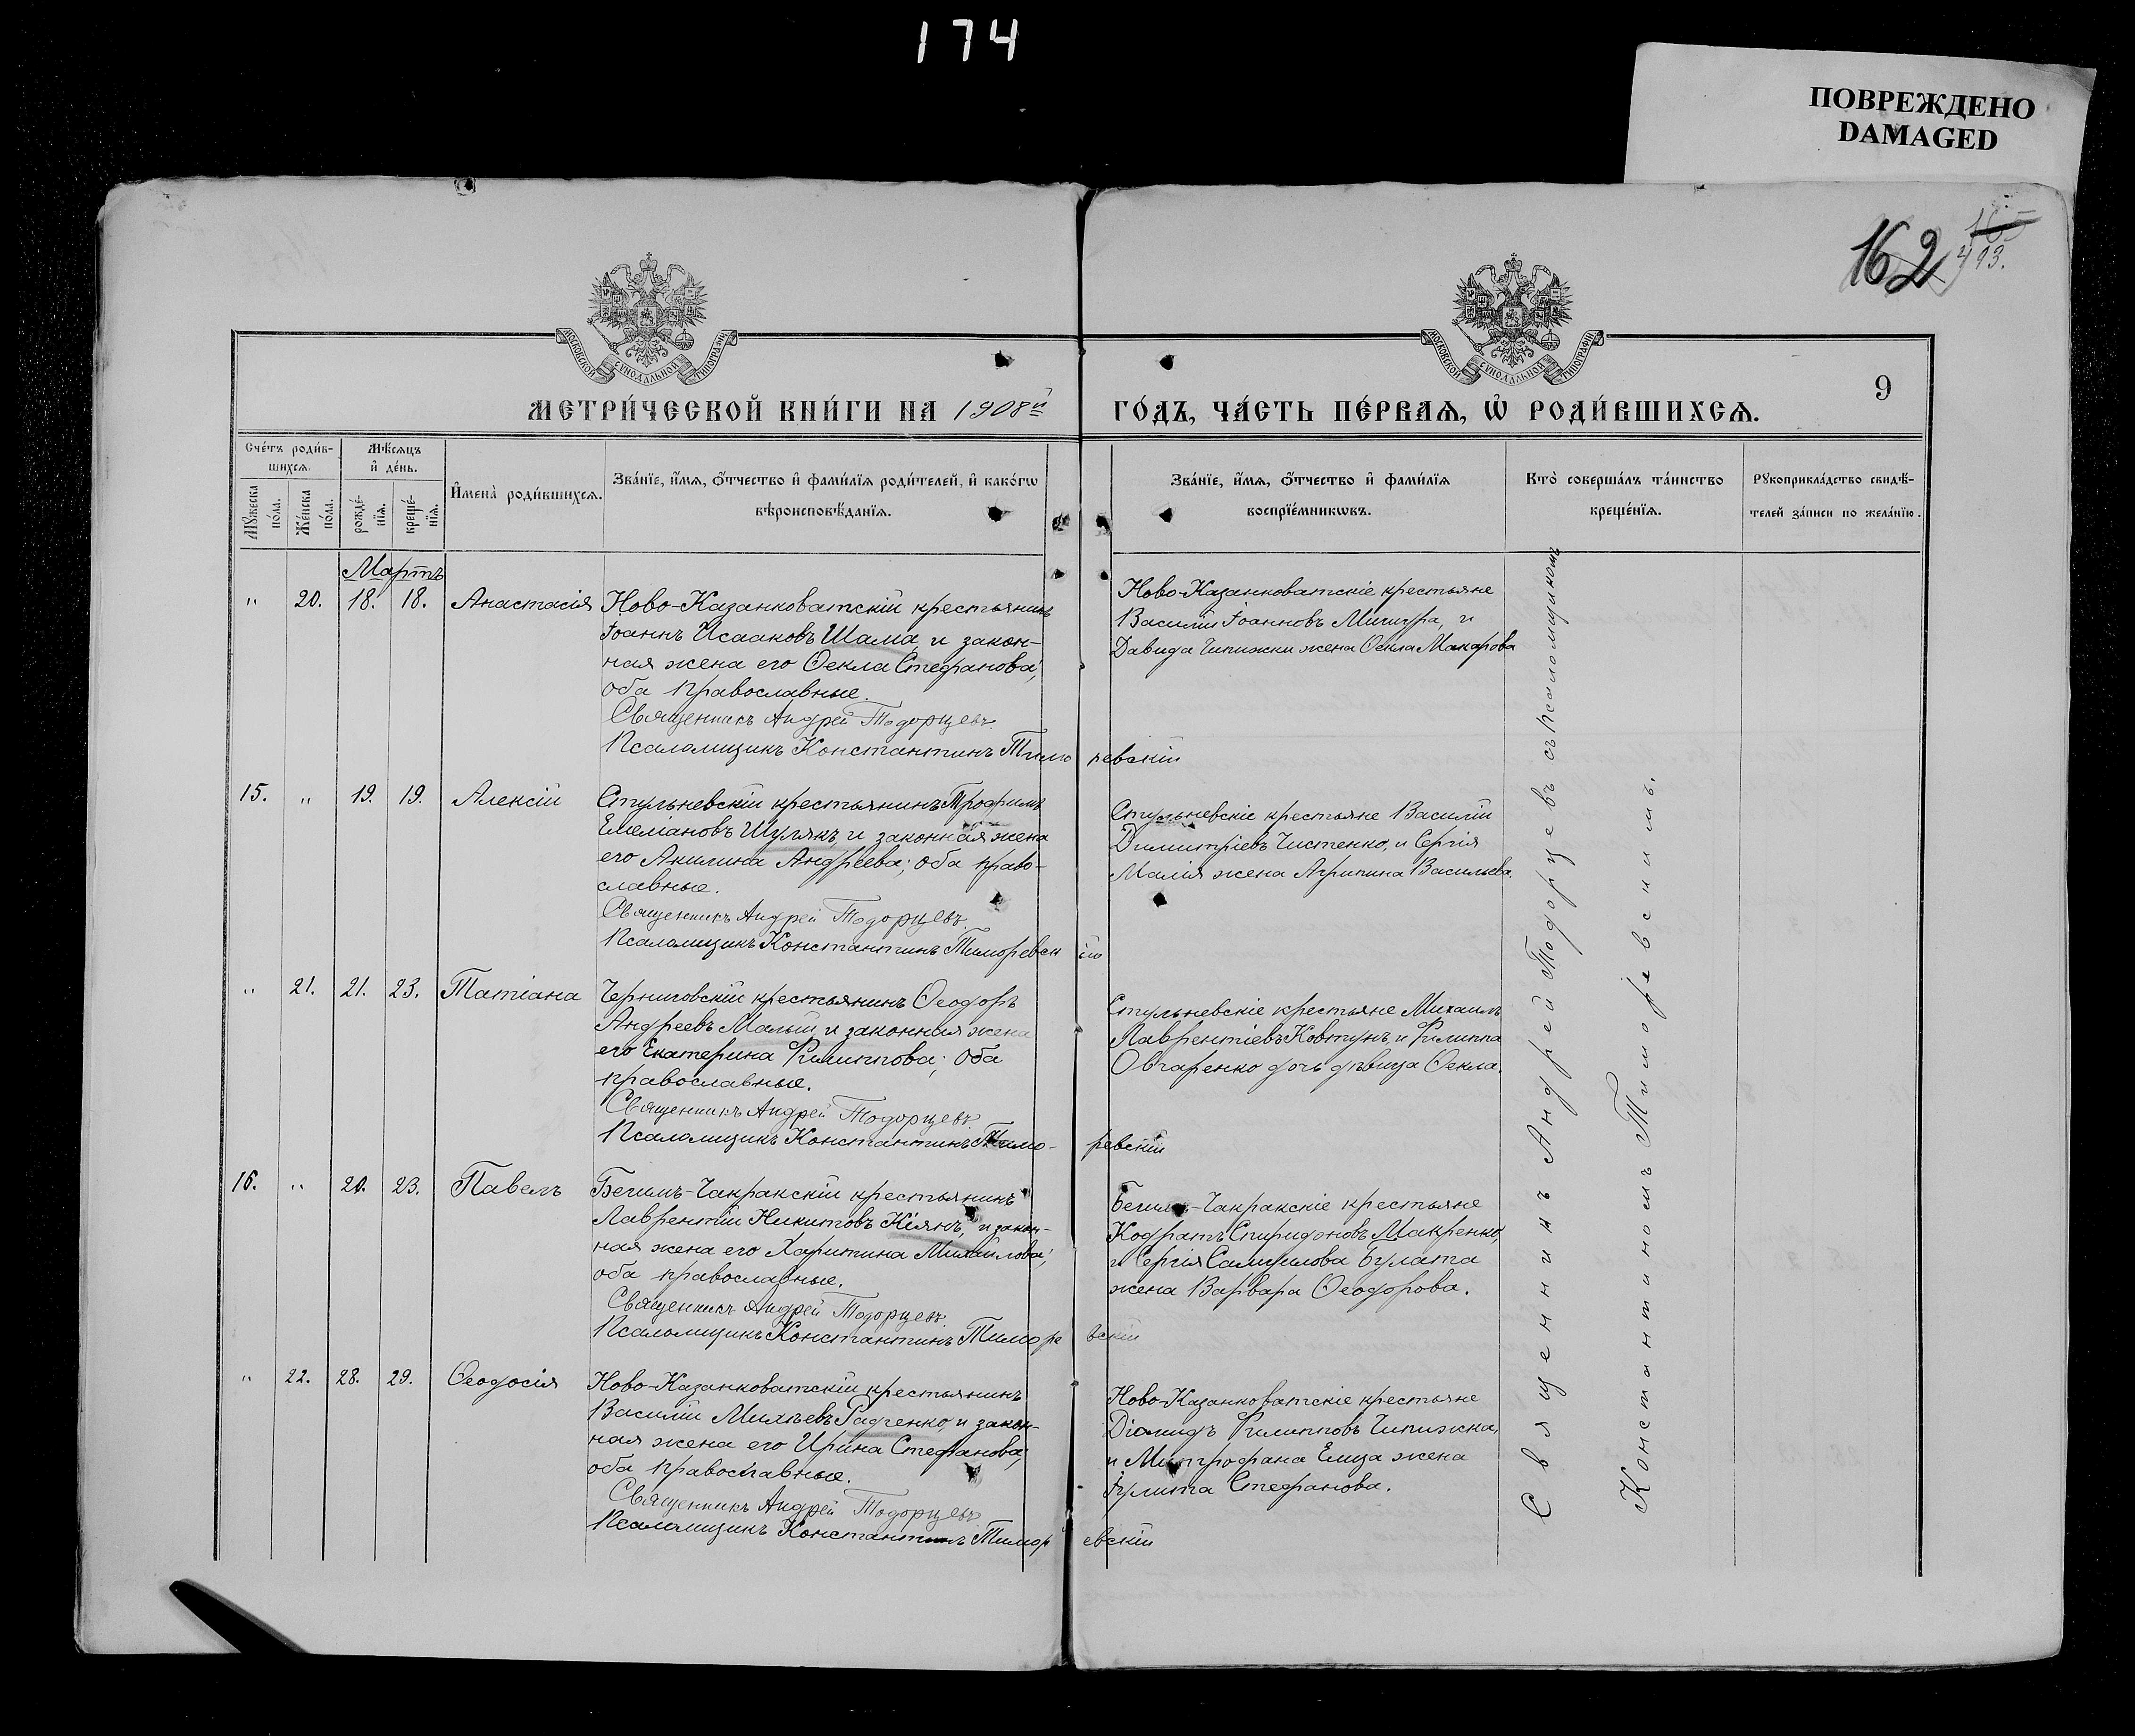 174
ПОВРЕЖДЕНО
DAMAGED
162
493.
МОСКОВСКОЙ СѴНОДАЛЬНОЙ ТИПОГРАФІИ
МОСКОВСКОЙ СѴНОДАЛЬНОЙ ТИПОГРАФІИ
9
МЕТРИ́ЧЕСКОЙ КНИ́ГИ НА 1908й
ГО́ДЪ, ЧА́СТЬ ПЕ́РВАѦ, Ѡ҆ РОДИ́ВШИХСѦ.
Сче́тъ роди́в-
шихсѧ.
Мѣ́сѧцъ
и҆ де́нь.
Мꙋ́жеска
по́ла.
Же́нска
по́ла.
рожде́-
нїѧ.
креще́-
нїѧ.
И҆мена̀ роди́вшихсѧ.
Зва́нїе, и҆́мѧ, ѻ҆́тчество и҆ фами́лїѧ роди́телей, и҆ како́гѡ
вѣроисповѣ́данїѧ.
Зва́нїе, и҆́мѧ, ѻ҆́тчество и҆ фами́лїѧ
воспрїе́мникѡвъ.
Кто̀ соверша́лъ та́инство
креще́нїѧ.
Рꙋкоприкла́дство свидѣ́-
телей за́писи по жела́нїю.
Мартъ
" 20. 18. 18. Анастасія
Ново-Казанковатскій крестьянинъ
Іоаннъ Исааковъ Шама, и закон-
ная жена его Ѳекла Стефанова;
оба православные.
Священникъ Андрей Тодорцевъ.
Псаломщикъ Константинъ Тиморевскій
Ново-Казанковатскіе крестьяне
Василій Іоанновъ Мишура, и
Давида Чипижки жена Ѳекла Макарова
15. " 19. 19. Алексій
Стульневскій крестьянинъ Трофимъ
Емеліановъ Шулякъ, и законная жена
его Акилина Андреева; оба право-
славные.
Священникъ Андрей Тодорцевъ.
Псаломщикъ Константинъ Тиморевскій
Стульневскіе крестьяне Василій
Димитріевъ Чистенко, и Сергія
Малія жена Агрипина Васильева.
" 21. 21. 23. Татіана
Черниговскій крестьянинъ Ѳеодоръ
Андреевъ Малый, и законная жена
его Екатерина Филиппова; оба
православные.
Священникъ Андрей Тодорцевъ.
Псаломщикъ Константинъ Тимо-ревскій
Стульневскіе крестьяне Михаилъ
Лаврентіевъ Ковтунъ, и Филиппа
Овчаренко дочь дѣвица Ѳекла.
16. " 20. 23. Павелъ
Бегимъ-Чакракскій крестьянинъ
Лаврентій Никитовъ Кіянъ, и закон-
ная жена его Харитина Михаилова;
оба православные.
Священникъ Андрей Тодорцевъ.
Псаломщикъ Константинъ Тиморевскій
Бегимъ-Чакракскіе крестьяне
Кодратъ Спиридоновъ Макренко,
и Сергія Самуилова Булата
жена Варвара Ѳеодорова.
" 22. 28. 29. Ѳеодосія
Ново-Казанковатскій крестьянинъ
Василій Михѣевъ Радченко, и закон-
ная жена его Ирина Стефанова;
оба православные.
Священникъ Андрей Тодорцевъ
Псаломщикъ Константинъ Тиморевскій
Ново-Казанковатскіе крестьяне
Діомидъ Филипповъ Чипижка,
и Митрофана Елиза жена
Іулита Стефанова.
Священникъ Андрей Тодорцевъ съ псаломщикомъ
Константиномъ Тиморевскимъ.